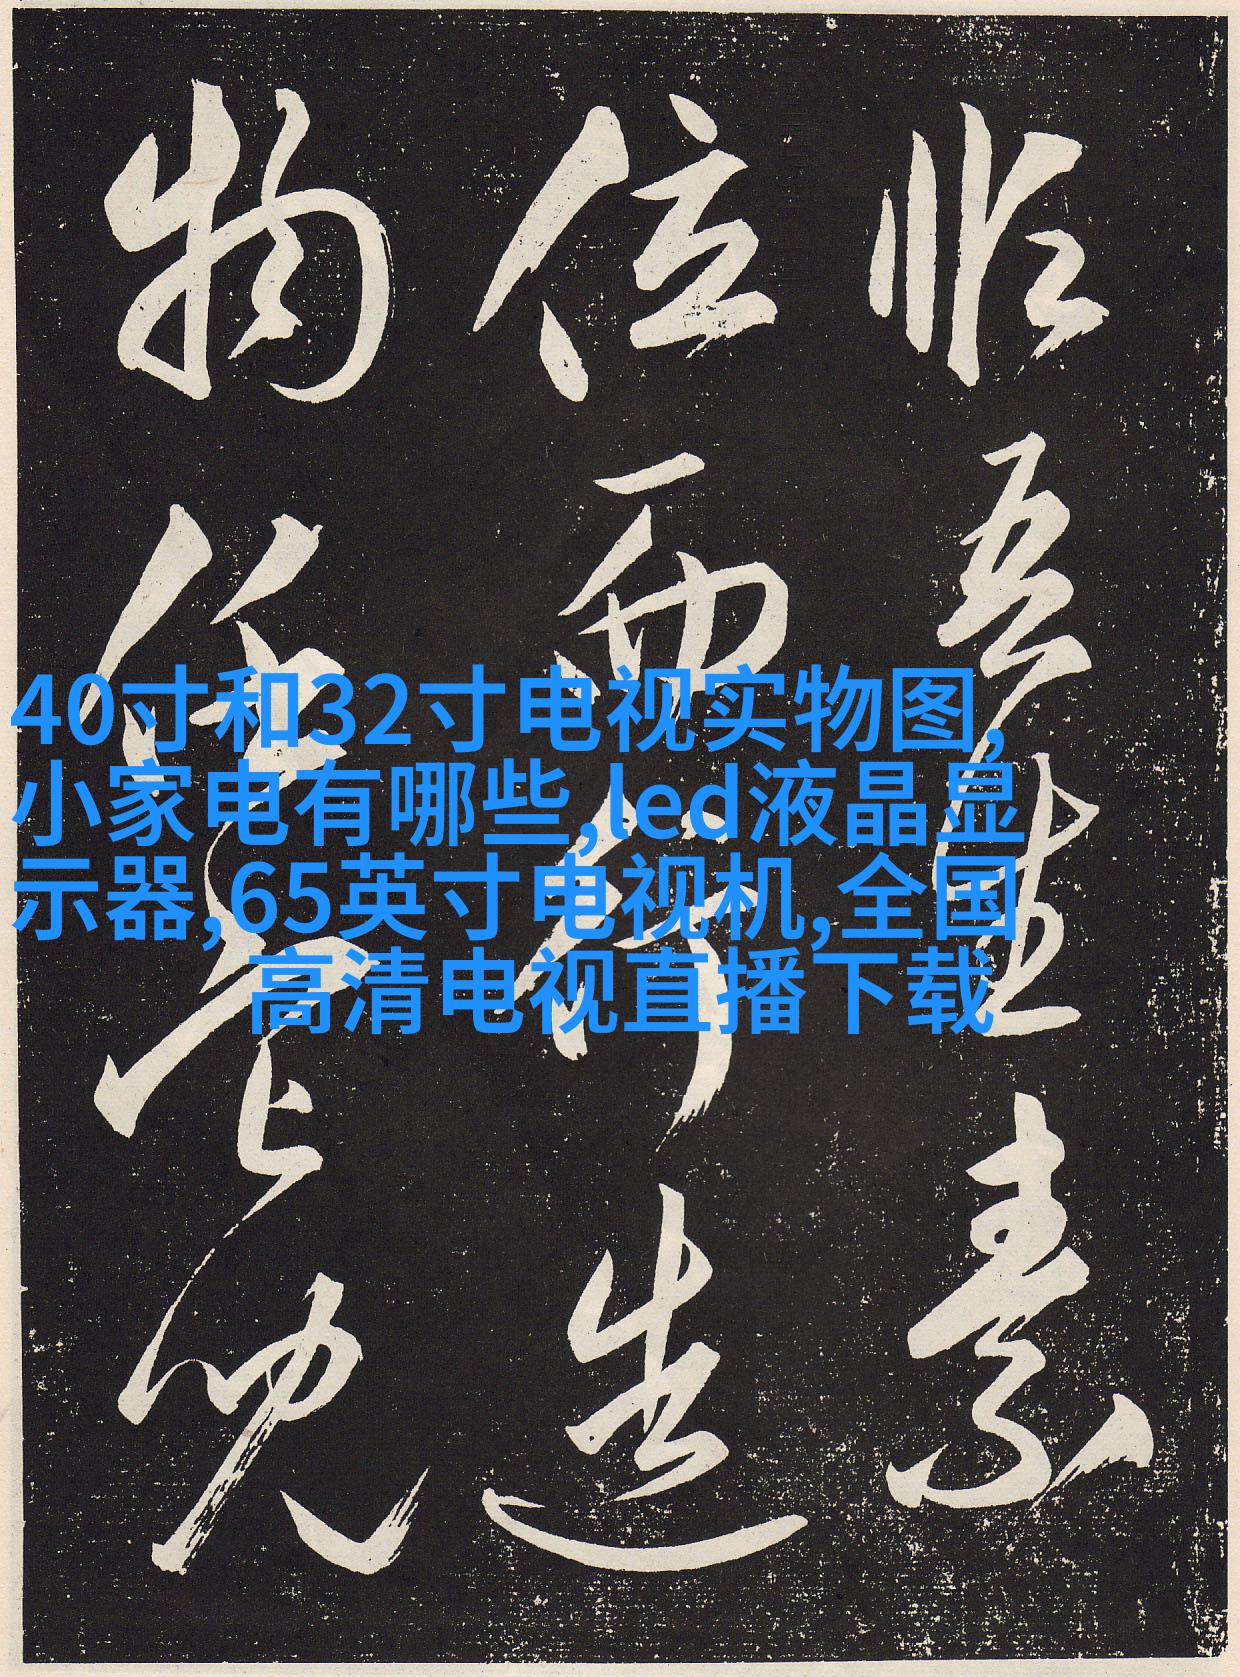 40寸和32寸电视实物图,
小家电有哪些,led液晶显
示器,65英寸电视机,全国
高清电视直播下载
吾素
位而行造
物